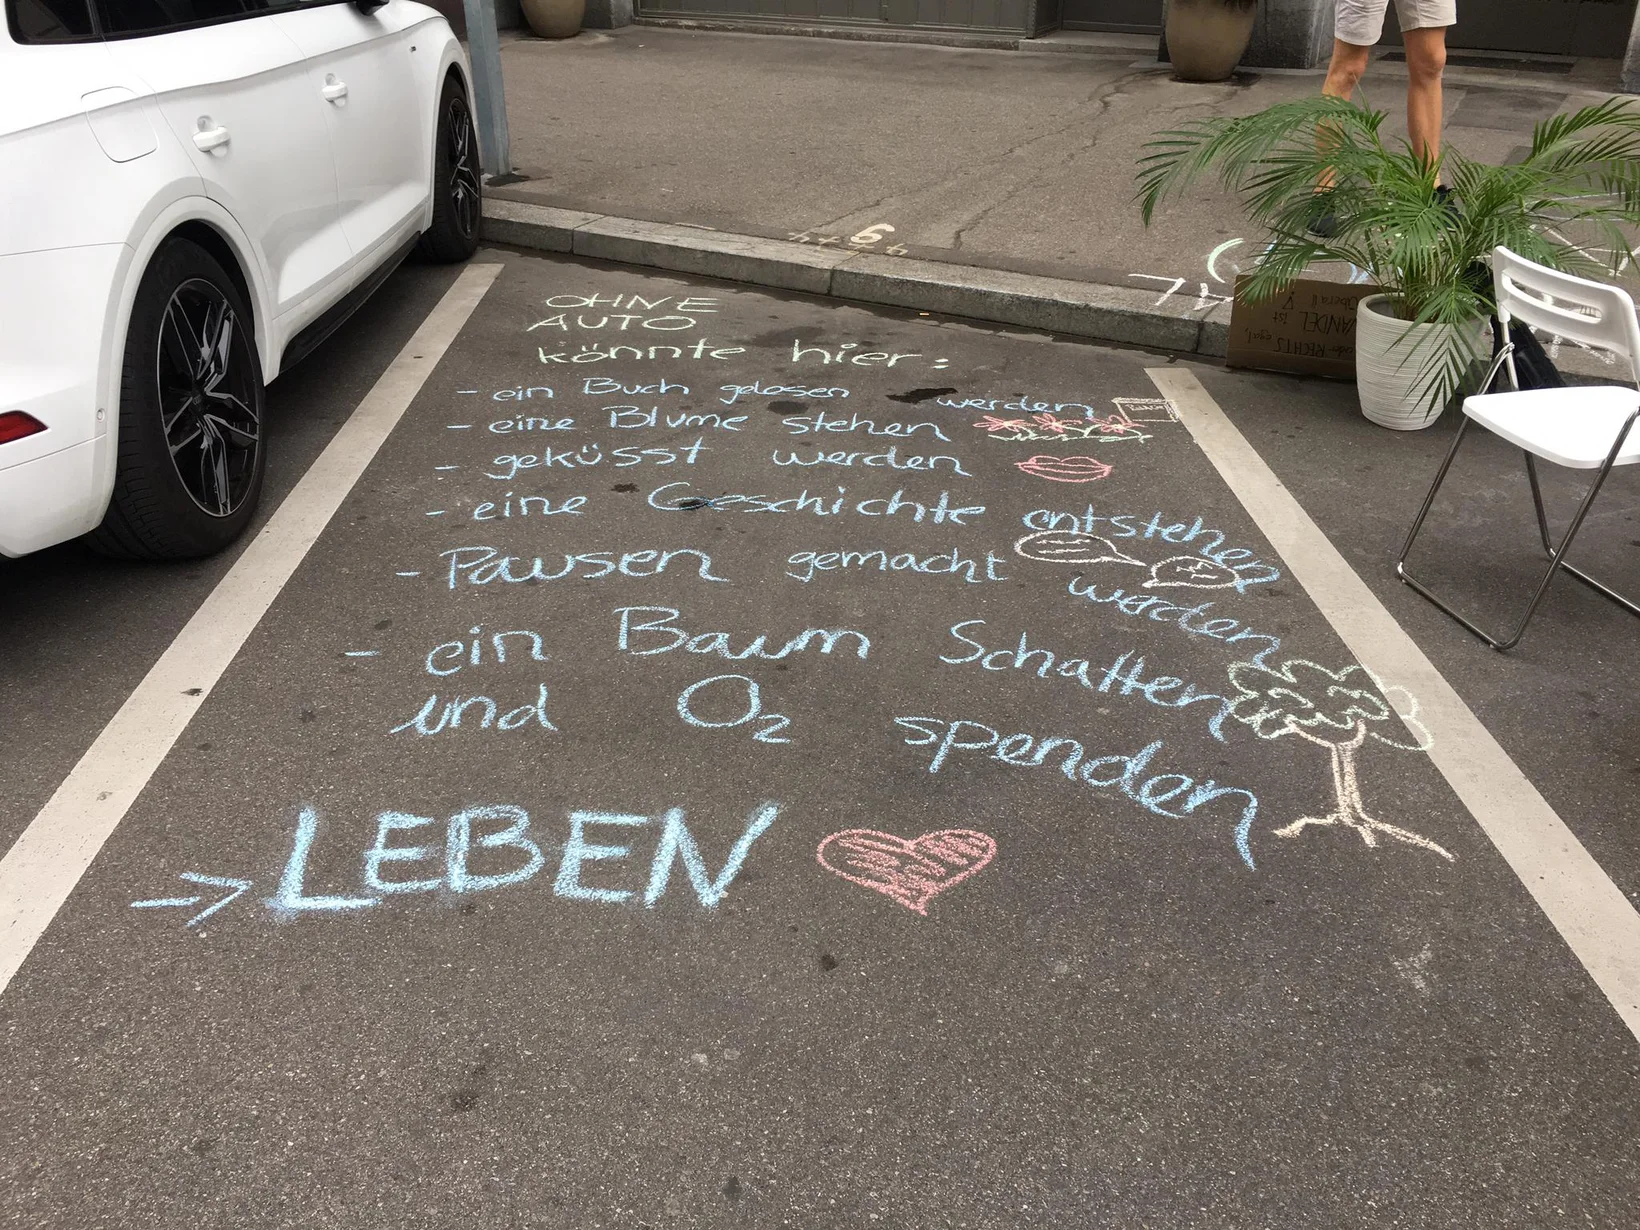 OHNE
AUTO
könnte hier:
- ein Buch gelesen werden
- eine Blume stehen
- geküsst werden
- eine Geschichte entstehen
- Pausen gemacht werden
- ein Baum Schatten
und O₂ spenden
=> LEBEN
6
RECHTS egal,
WANDEL ist
überall